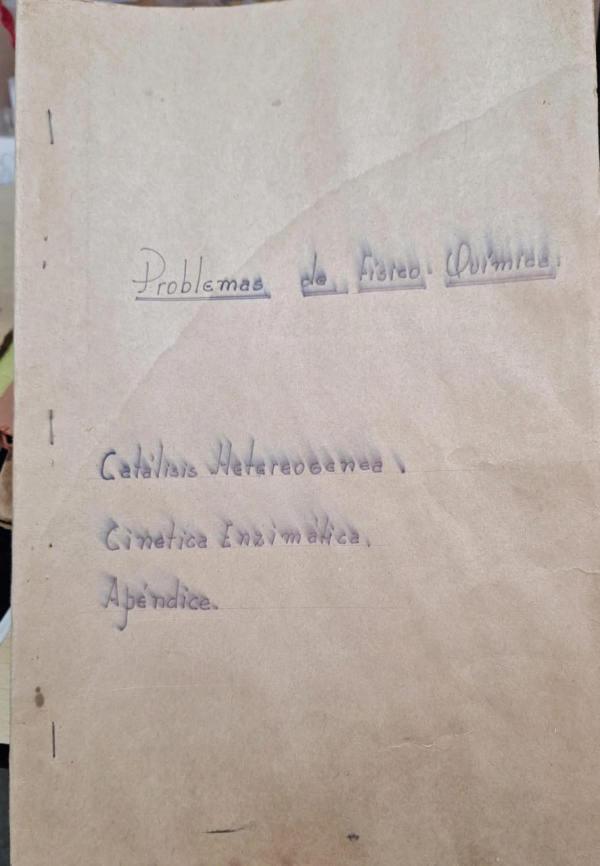 Problemas de Fisico Química.
Catálisis Hetereogenea.
Cinetica Enzimática.
Apéndice.